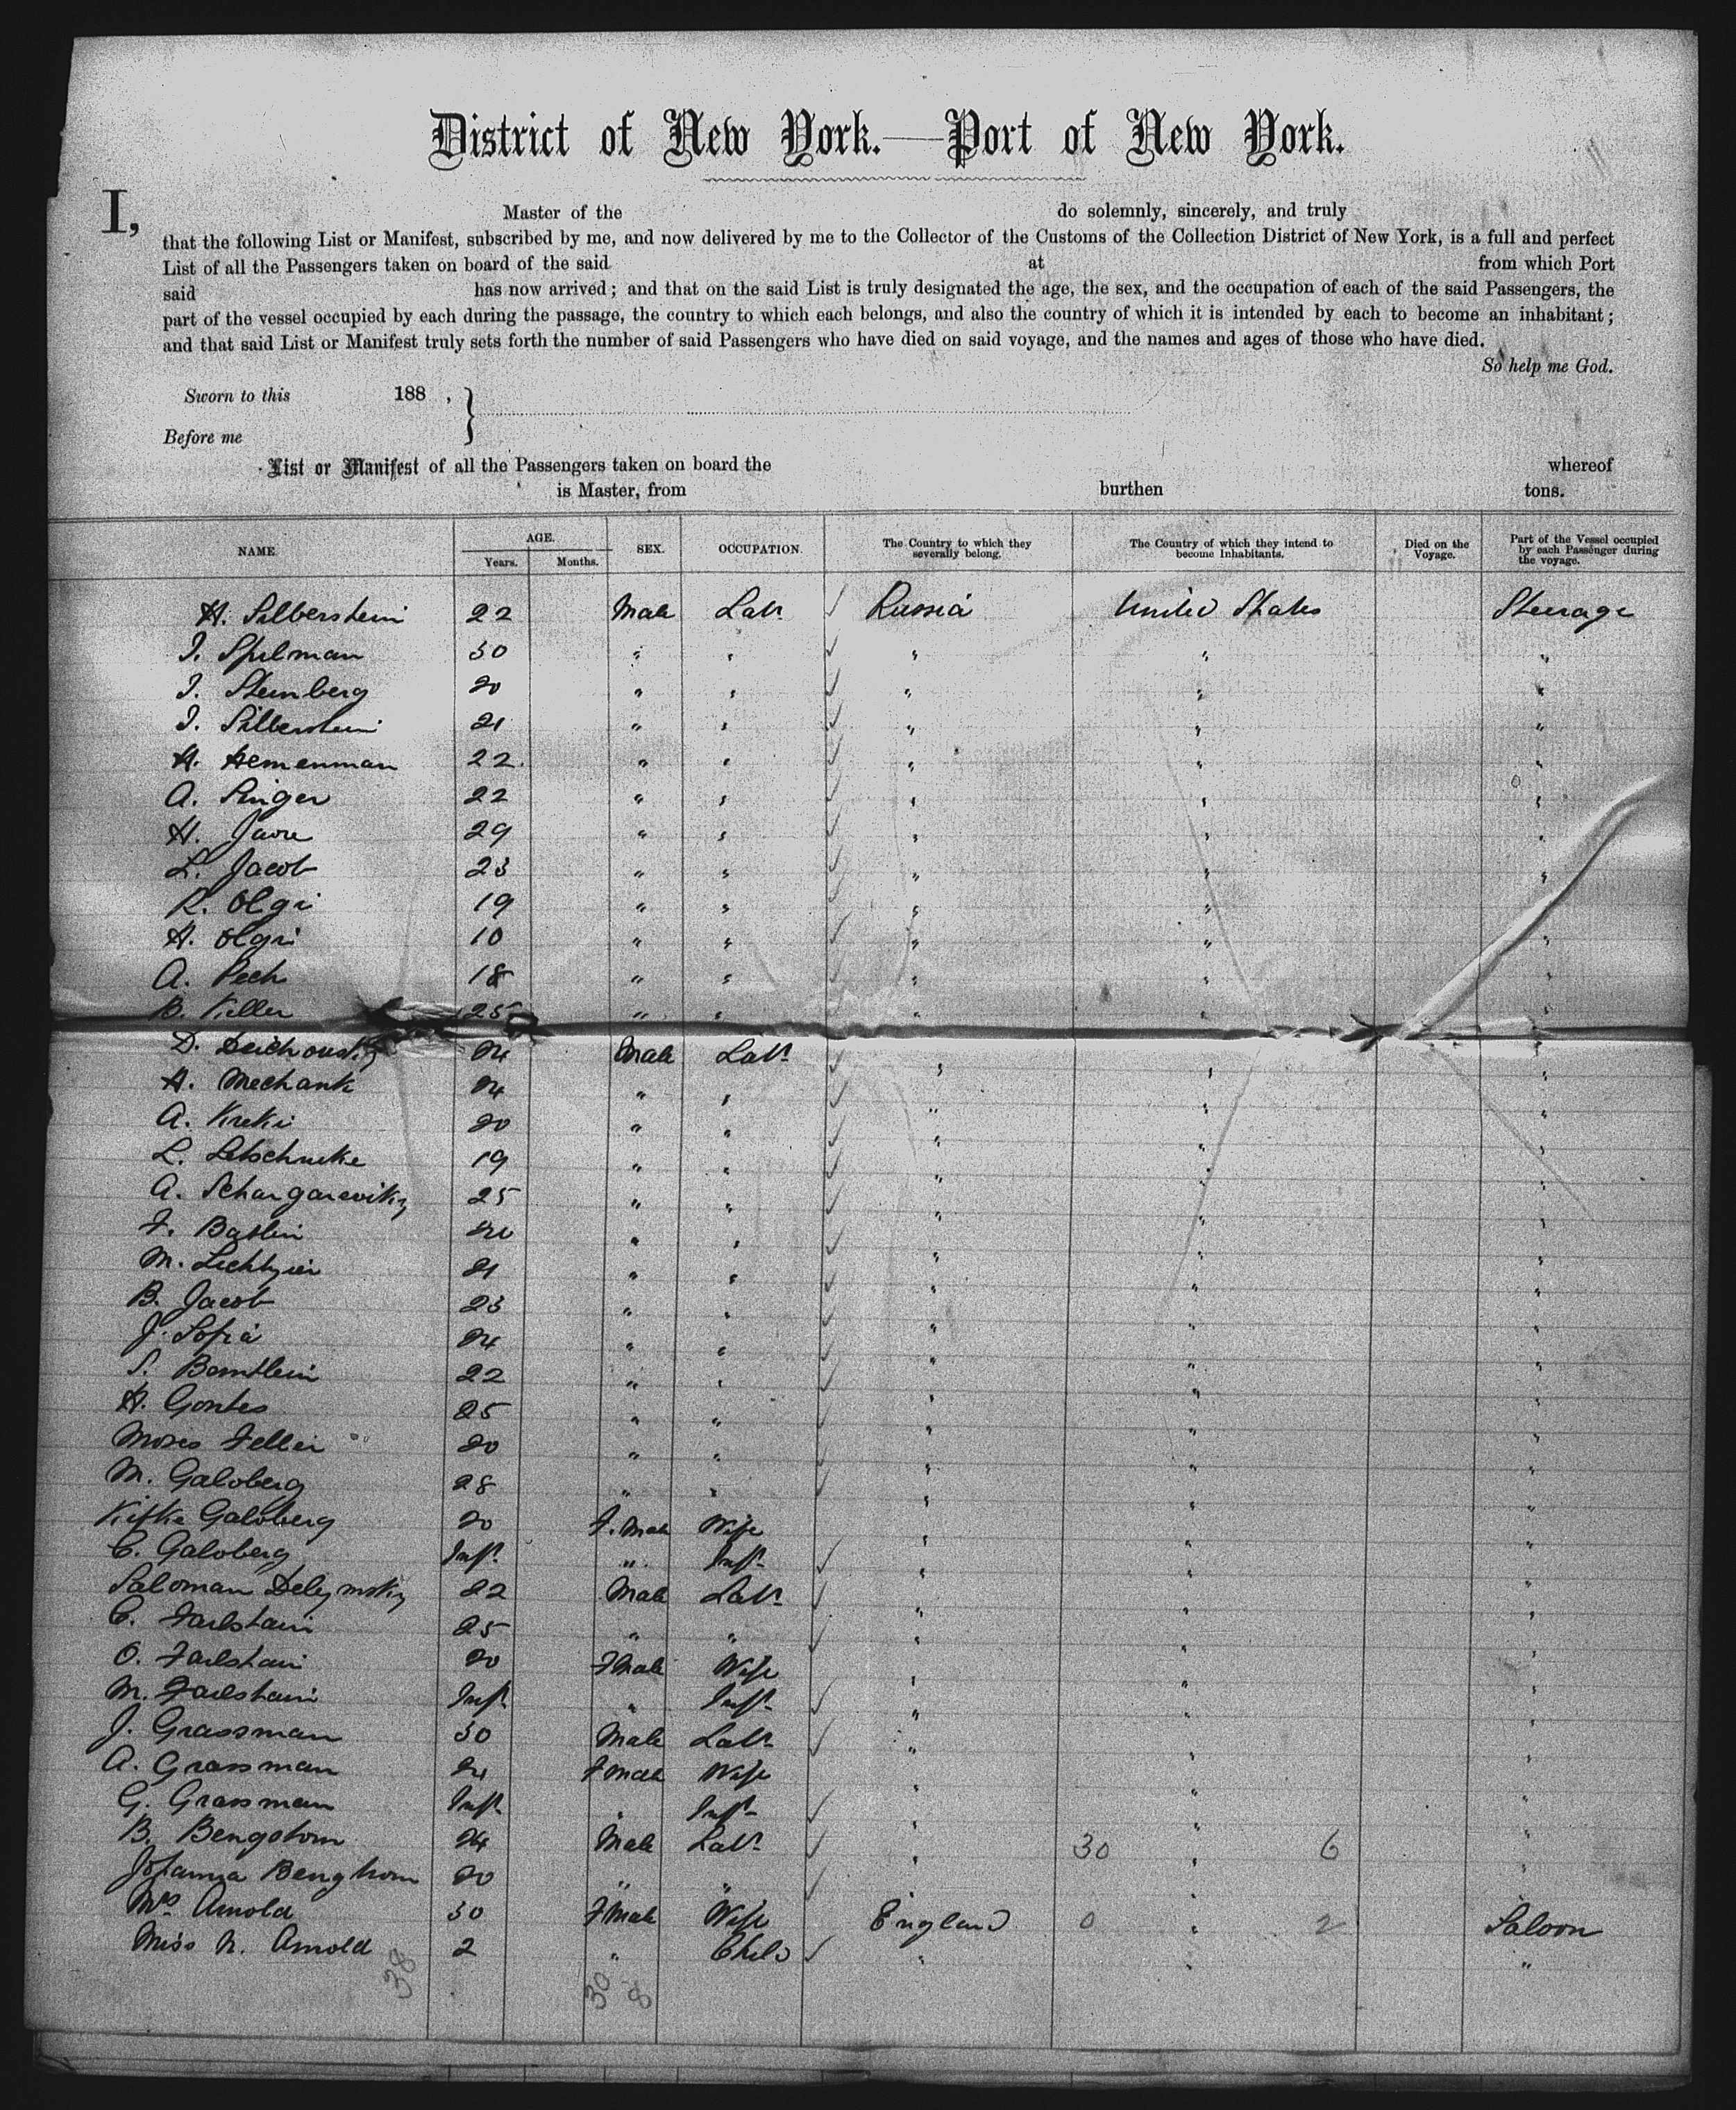 District of New York.—Port of New York.
I, Master of the do solemnly, sincerely, and truly
that the following List or Manifest, subscribed by me, and now delivered by me to the Collector of the Customs of the Collection District of New York, is a full and perfect
List of all the Passengers taken on board of the said at from which Port
said has now arrived; and that on the said List is truly designated the age, the sex, and the occupation of each of the said Passengers, the
part of the vessel occupied by each during the passage, the country to which each belongs, and also the country of which it is intended by each to become an inhabitant;
and that said List or Manifest truly sets forth the number of said Passengers who have died on said voyage, and the names and ages of those who have died.
So help me God.
Sworn to this 188 ,
Before me
List or Manifest of all the Passengers taken on board the whereof
is Master, from burthen tons.
NAME. AGE. Years. Months. SEX. OCCUPATION. The Country to which they severally belong. The Country of which they intend to become Inhabitants. Died on the Voyage. Part of the Vessel occupied by each Passenger during the voyage.
H. Silberstein 22 Male Labr ✓ Russia United States Steerage
I. Spilman 30 " " ✓ " " "
I. Steinberg 20 " " ✓ " " "
I. Silberstein 21 " " ✓ " " "
H. Hemenman 22 " " ✓ " " "
A. Singer 22 " " ✓ " " "
H. 29 " " ✓ " " "
L. Jacob 23 " " ✓ " " "
R. Olgi 19 " " ✓ " "
H. Olgi 10 " " ✓ " " "
A. Pech 18 " " ✓ " " "
B. Keller 25 " " " " "
D. 24 Male Labr ✓ " " "
H. Mechank 24 " " ✓ " " "
A. Kreki 20 " " ✓ " " "
L. 19 " " ✓ " " "
A. 25 " " ✓ " " "
F. " " ✓ " " "
M. 21 " " ✓ " " "
B. Jacob 23 " " ✓ " " "
J. Sofia 24 " " ✓ " " "
S. Bernstein 22 " " ✓ " " "
H. Gontes 25 " " ✓ " " "
Moses Feller 20 " " ✓ " " "
M. Galoberg 28 " " ✓ " " "
Kifke Galoberg 20 F. Male Wife " " "
C. Galoberg Inft " Inft ✓ " " "
Saloman 22 Male Labr ✓ " " "
C. Farlstain 25 " " ✓ " " "
O. Farlstain 20 F Male Wife " " "
M. Farlstain Inft " Inft ✓ " " "
J. Grassman 30 Male Labr ✓ " " "
A. Grassman 21 F Male Wife " " "
G. Grassman Inft " Inft ✓ " " "
B. Bengstom 24 Male Labr ✓ " 30 " 6 "
Johanna 20 " " ✓ "
Mrs Arnold 30 F Male Wife England 0 " 2 Saloon
Miss N. Arnold 2 " Child ✓ " " "
38 30 8